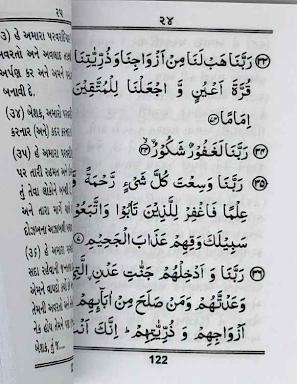 ૨૫
૩) હે અમારા પરવરદિ
અવરતો અને અવલાદ
અર્પણ કર અને અમને
બનાવી દે.
(૩૪) બેશક, અમારો પરવર
કરનાર (અને) કદર કરના
(૩૫) હે અમારા પરવ
પર તારી રહમત અને
તું તેવા લોકોને બખ્શી
અને તારા માર્ગે ચાલે
દોઝખના અઝાબથી
(૩૬) હે અમારા
સદા રહેવાની જન્નત
એમને વાયદો કર્યો
તેમની અવરતો અને
નેક હોય તેમને પણ
બેશક, તું જ
૨૪
(٣٣) رَبَّنَا هَبْ لَنَا مِنْ اَزْوَاجِنَا وَ ذُرِّيّٰتِنَا
قُرَّةَ اَعْيُنٍ وَّ اجْعَلْنَا لِلْمُتَّقِيْنَ
اِمَامًا
(٣٤) رَبَّنَا لَغَفُوْرٌ شَكُوْرٌ
(٣٥) رَبَّنَا وَسِعْتَ كُلَّ شَيْءٍ رَّحْمَةً وَّ
عِلْمًا فَاغْفِرْ لِلَّذِيْنَ تَابُوْا وَاتَّبَعُوْا
سَبِيْلَكَ وَقِهِمْ عَذَابَ الْجَحِيْمِ
(٣٦) رَبَّنَا وَ اَدْخِلْهُمْ جَنّٰتِ عَدْنِ الَّتِيْ
وَعَدْتَّهُمْ وَمَنْ صَلَحَ مِنْ اٰبَآئِهِمْ
اَزْوَاجِهِمْ وَ ذُرِّيّٰتِهِمْ اِنَّكَ اَنْتَ
122